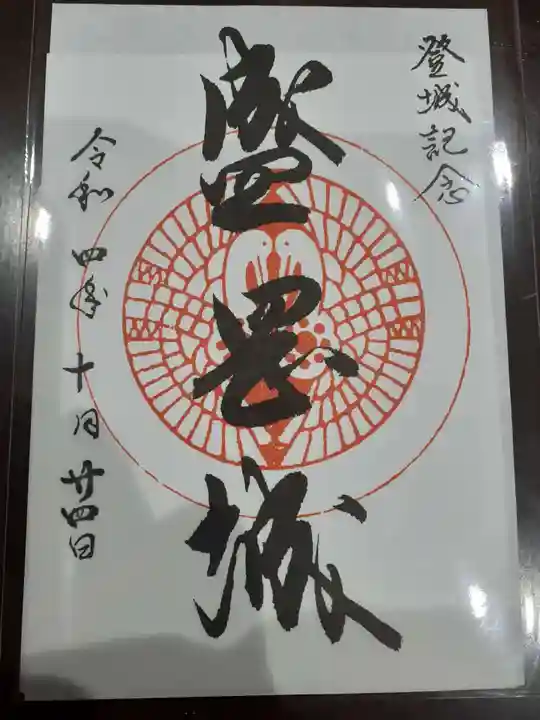 登城記念
盛岡城
令和四年十月廿四日